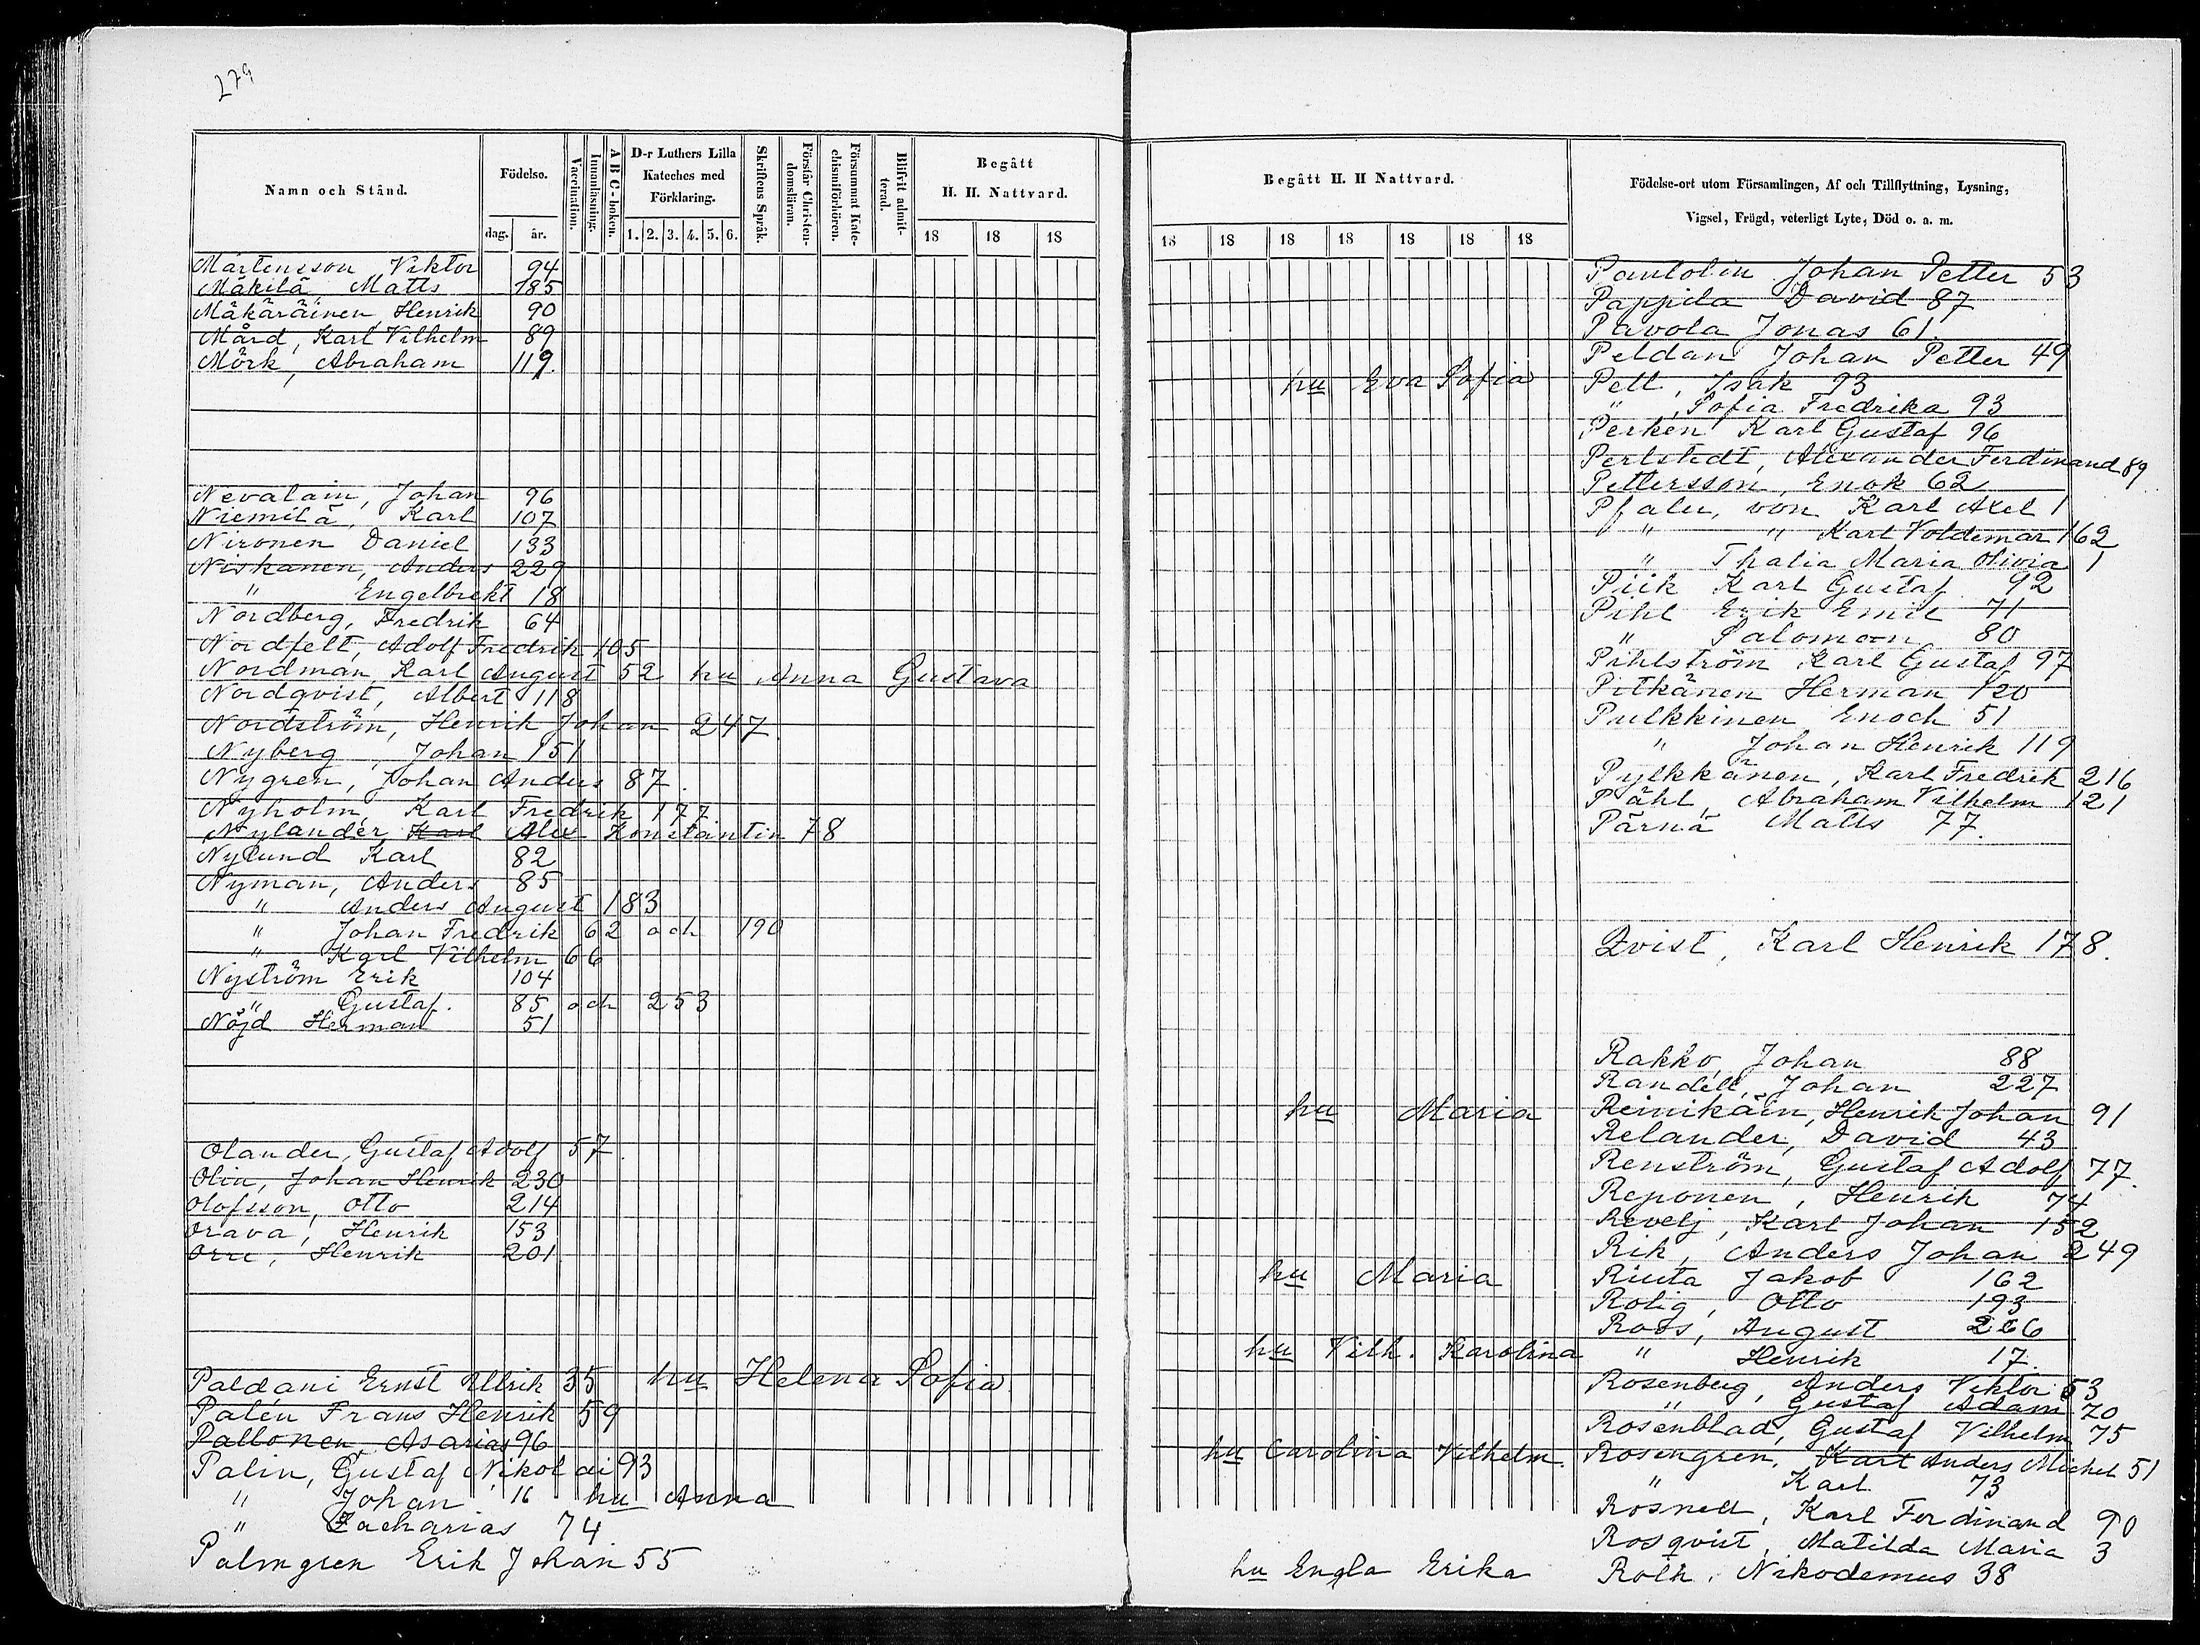 279
Namn och Stånd.
Födelse.
dag.
år.
Vaccination.
Innanläsning.
A B C-boken.
D-r Luthers Lilla
Kateches med
Förklaring.
1. 2. 3. 4. 5. 6.
Skriftens Språk.
Förstår Christen-
domsläran.
Försummat Kate-
chismiförhören.
Blifvit admit-
terad.
Begått
H. H. Nattvard.
18 18 18
Mårtensson Viktor 94
Mäkelä Matts 185
Mäkäräinen, Henrik 90
Mård, Karl Vilhelm 89
Mörk, Abraham 119.
Nevalain, Johan 96
Niemilä, Karl 107
Nironen Daniel 133
Niskanen, Anders 229
" Engelbrekt 18
Nordberg, Fredrik 64
Nordfelt, Adolf Fredrik 105
Nordman, Karl August 52 hu Anna Gustava
Nordqvist, Albert 118
Nordström, Henrik Johan 247
Nyberg, Johan 151
Nygren, Johan Anders 87.
Nyholm, Karl Fredrik 177
Nylander, Karl Alex Konstantin 78
Nylund Karl 82
Nyman, Anders 85
" Anders August 183
" Johan Fredrik 62 och 190
" Karl Vilhelm 66
Nyström Erik 104
" Gustaf. 85 och 253
Nöjd Herman 51
Olander, Gustaf Adolf 57
Olin, Johan Henrik 230
Olofsson, Otto 214
Orava, Henrik 153
Orre, Henrik 201
Paldani Ernst Ullrik 35 hu Helena Sofia
Palén Frans Henrik 59
Pallonen, Asarias 96
Palin, Gustaf Nikolai 93
" Johan 16 hu Anna
" Zacharias 74
Palmgren Erik Johan 55
Begått H. H Nattvard.
18 18 18 18 18 18 18
Födelse-ort utom Församlingen, Af och Tillflyttning, Lysning,
Vigsel, Frägd, veterligt Lyte, Död o. a. m.
Pantolin Johan Petter 53
Pappila David 87
Pavola Jonas 61
Peldan Johan Petter 49
hu Eva Sofia Pell, Isak 93
" , Sofia Fredrika 93
Perkén Karl Gustaf 96
Perlstedt, Alexander Ferdinand 89
Pettersson, Enok 62
Pfaler, von Karl Axel 1
" " Karl Voldemar 162
" Thalia Maria Olivia 1
Piik Karl Gustaf 92
Pihl Erik Emil 71
" Salomon 80
Pihlström Karl Gustaf 97
Pitkänen Herman 120
Pulkkinen Enoch 51
" Johan Henrik 119
Pylkkänen, Karl Fredrik 216
Påhl, Abraham Vilhelm 121
Pärnä Matts 77.
Qvist, Karl Henrik 178.
Rakko, Johan 88
Randell, Johan 227
hu Maria Reinikäin, Henrik Johan 91
Relander, David 43
Renström, Gustaf Adolf 77.
Reponen, Henrik 74
Revelj, Karl Johan 152
Rik, Anders Johan 249
hu Maria Riuta Jakob 162
Rolig, Otto 193
Roos, August 266
hu Vilh. Karolina " Henrik 17.
Rosenberg, Anders Viktor 53
" Gustaf Adam 70
Rosenblad, Gustaf Vilhelm 75
hu Carolina Vilhelm. Rosengren, Karl Anders Michel 51
" Karl 73
Rosnell, Karl Ferdinand 90
Rosqvist, Matilda Maria 3
hu Engla Erika Roth, Nikodemus 38